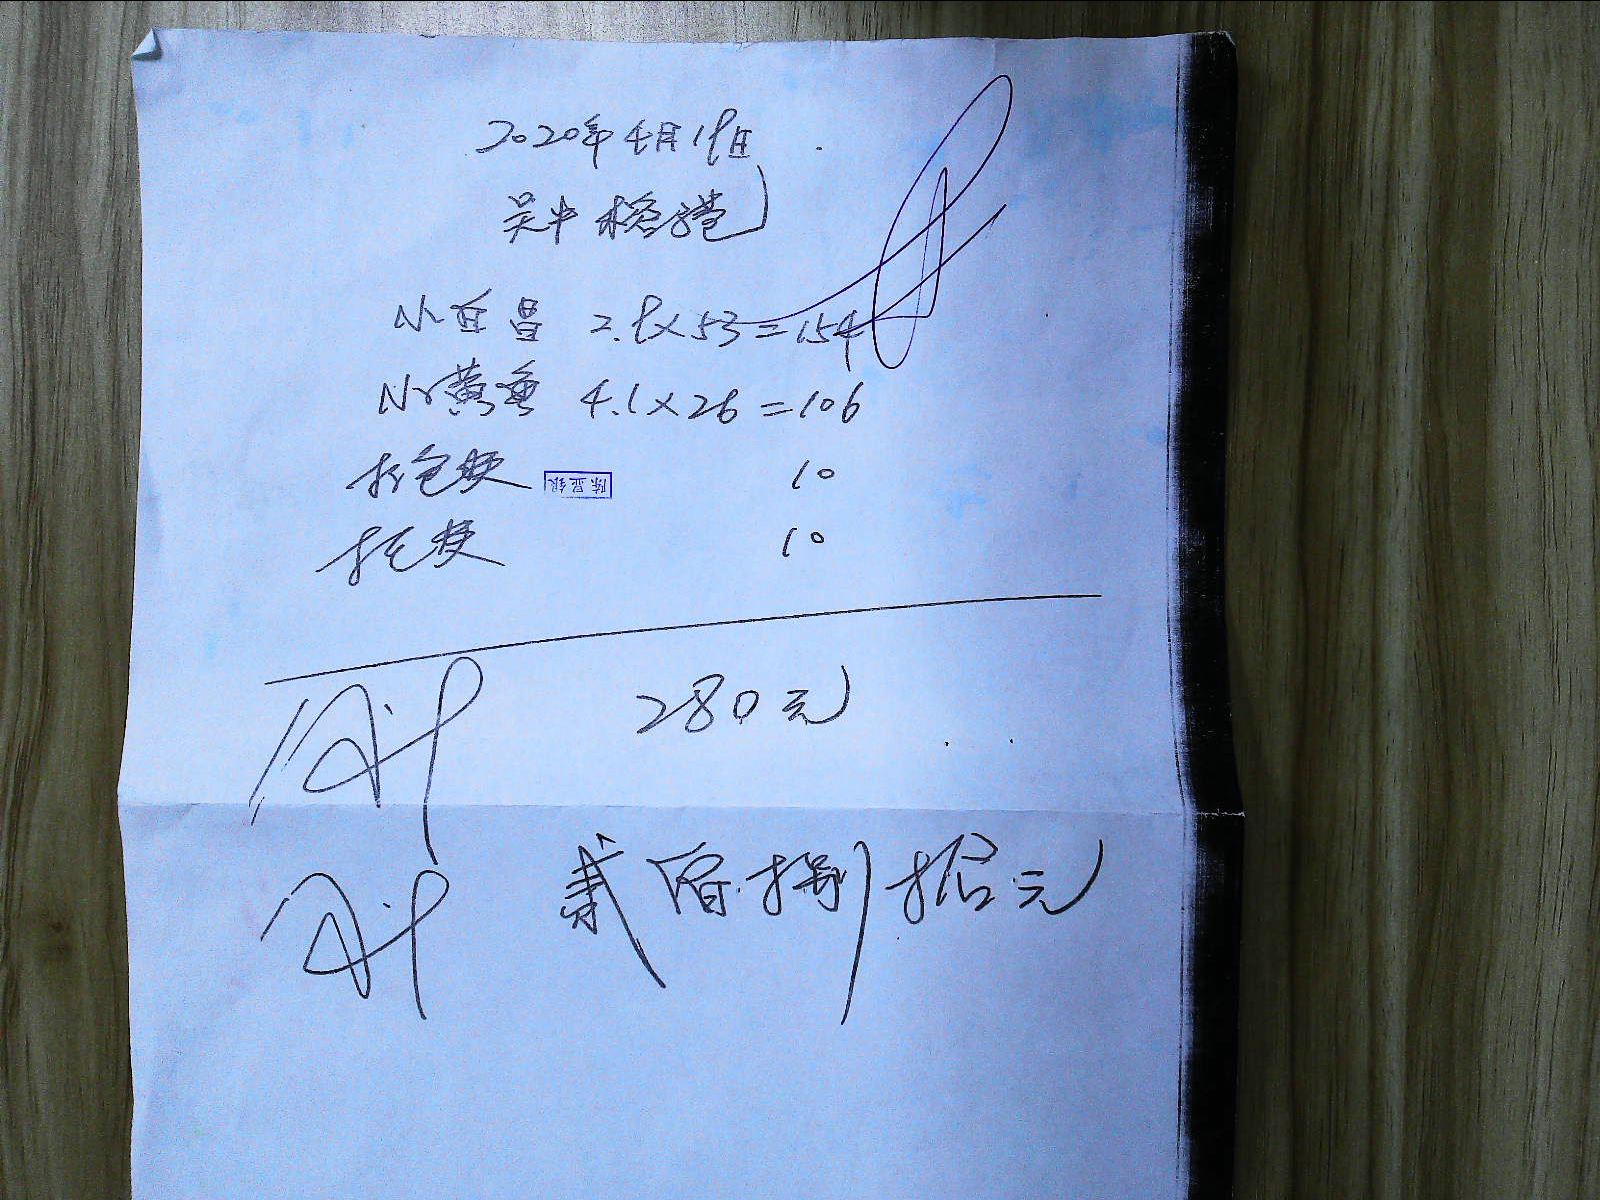 2020年4月19日
吴中
小白昌 2.9×53=154
小黄鱼 4.1×26=106
打包费 10
陈显银
托费 10
合计 280元
合计 贰佰捌拾元